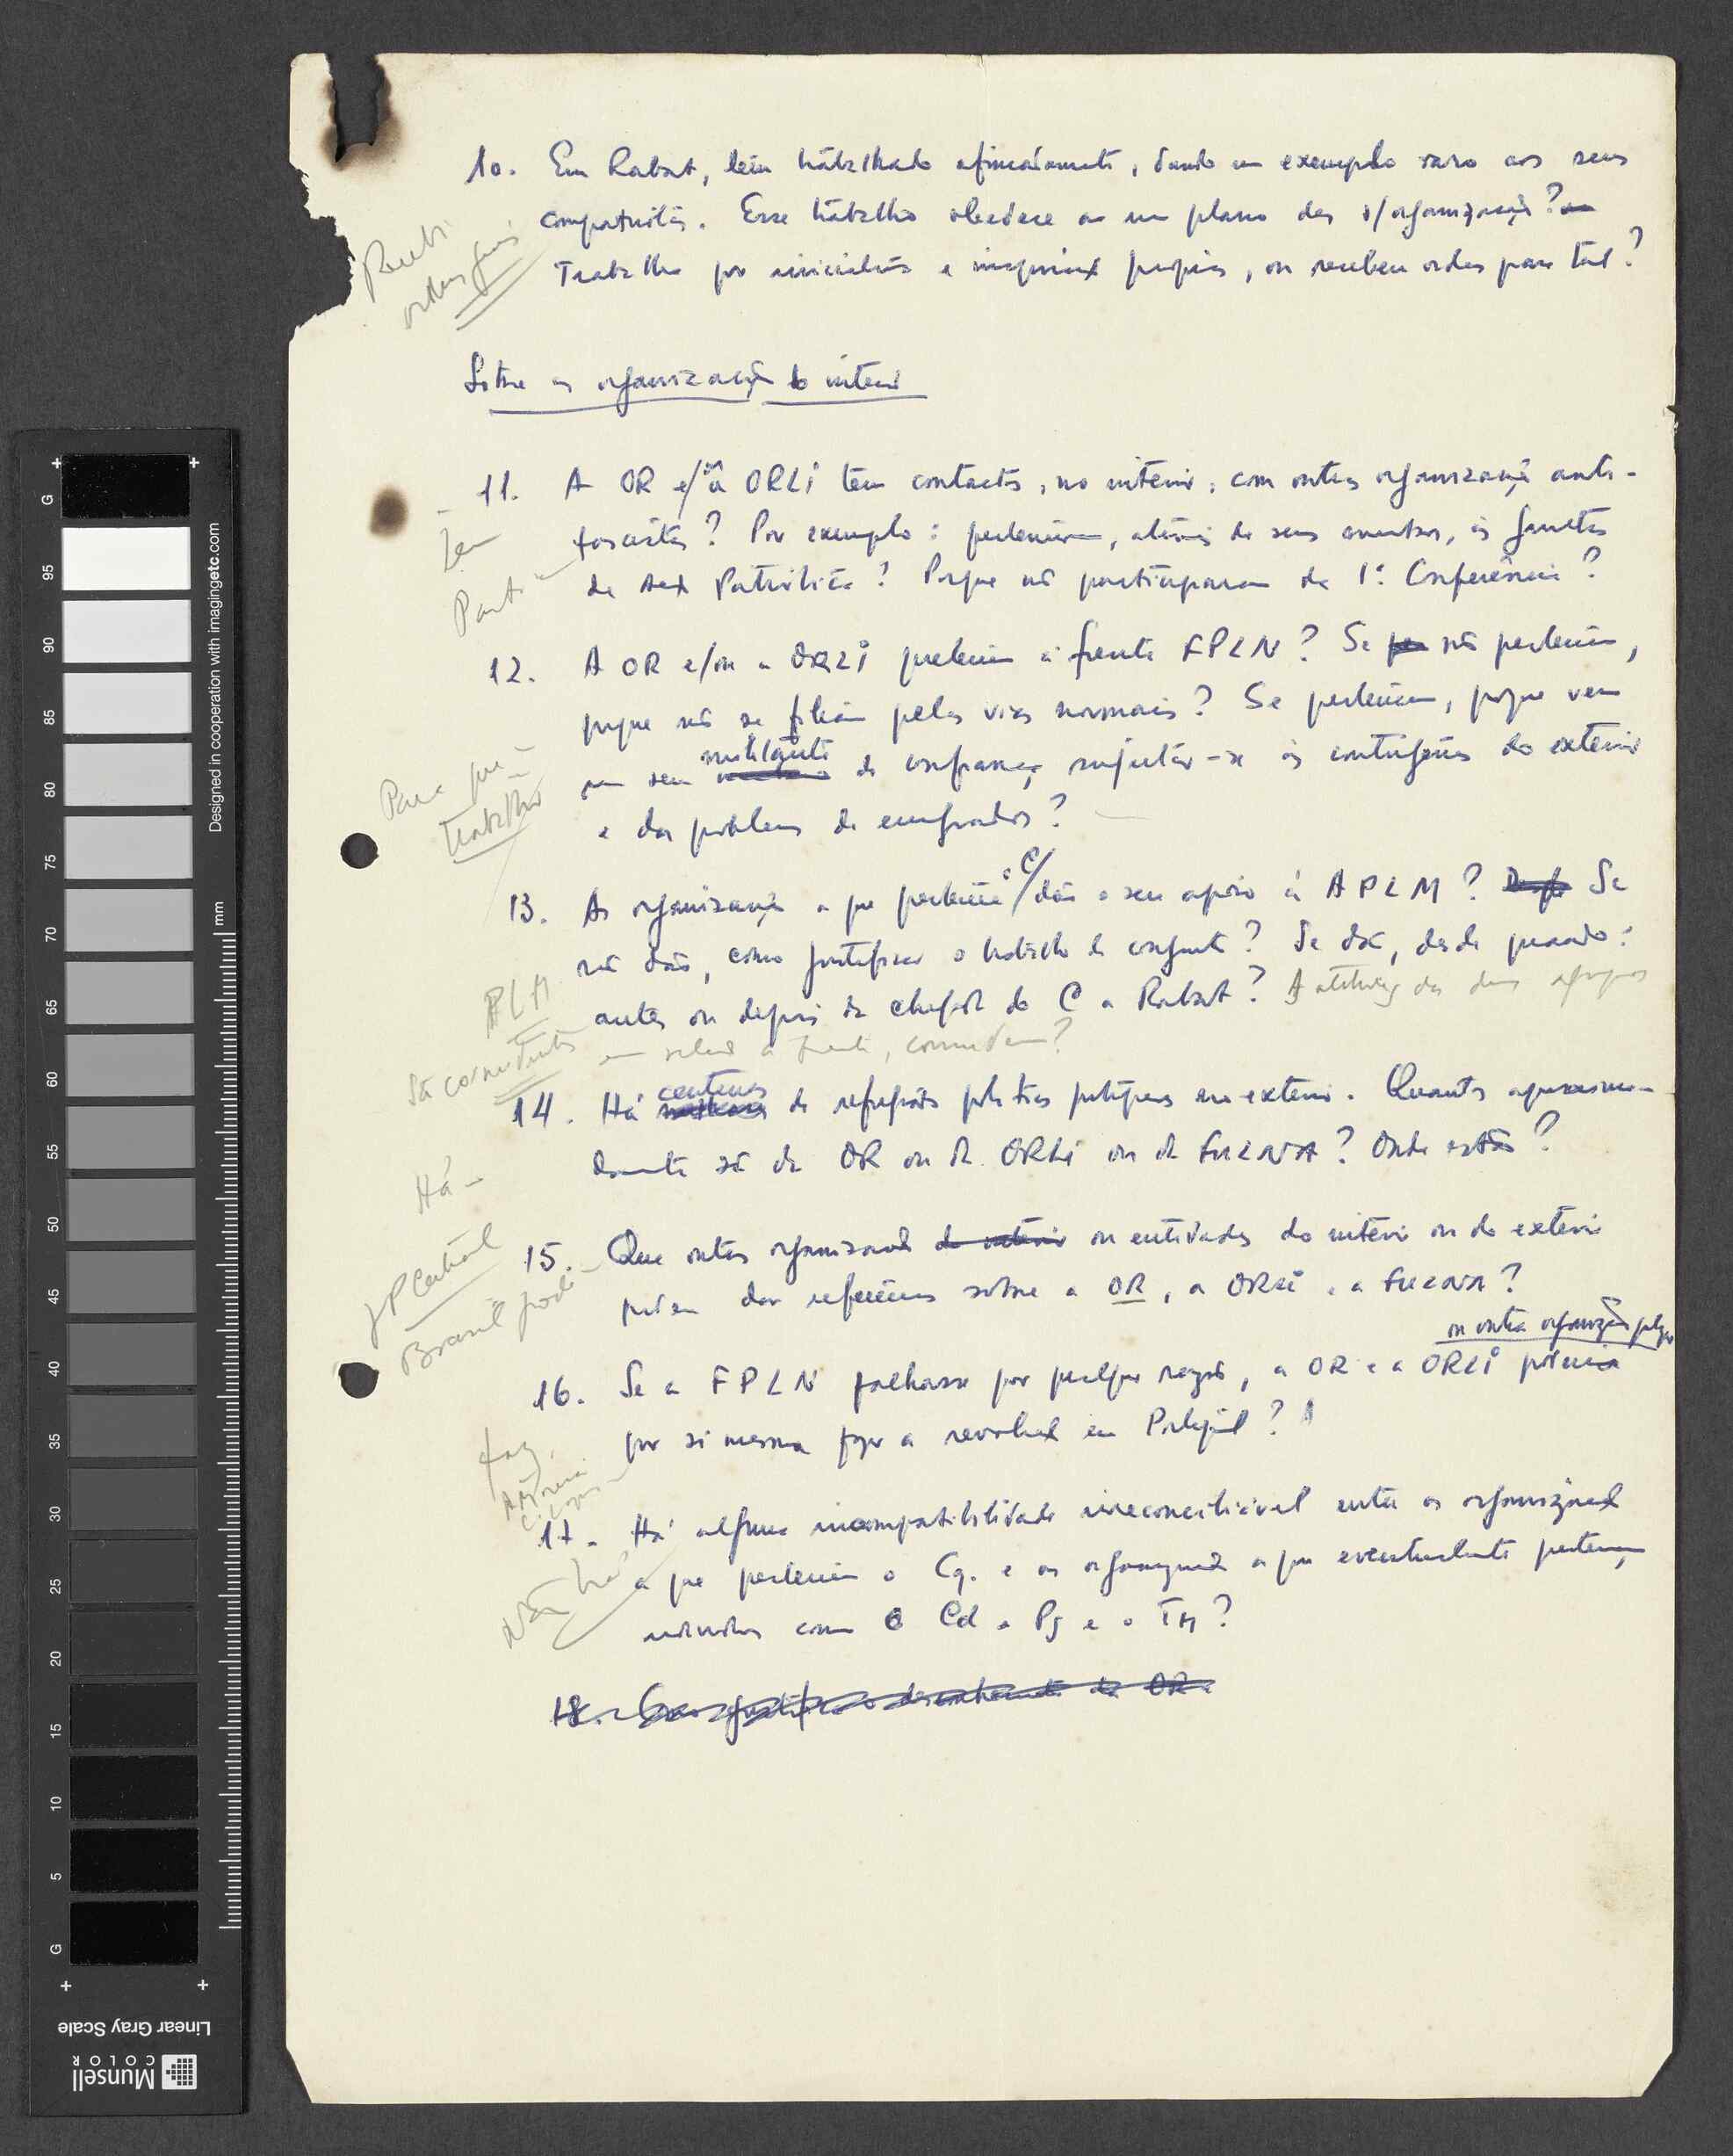 10. Em Rabat, tem trabalhado afincadamente, dando um exemplo raro aos seus
compatriotas. Esse trabalho obedece a um plano das s/organizações?
Trabalha por iniciativa e inspiração própria, ou recebeu ordens para tal?
Recebi
ordens
Sobre as organizações do interior
11. A OR e/ou a ORLI têm contactos, no interior, com outras organizações anti-
fascistas? Por exemplo: pertenceram, através de seus membros, às Juntas
de Acção Patriótica? Porque não participaram da 1ª Conferência?
Têm
12. A OR e/ou a ORLI pertencem à frente FPLN? Se não pertencem,
porque não se filiam pelas vias normais? Se pertencem, porque vem
um seu militante de confiança sujeitar-se às contingências do exterior
e dos problemas de emigrados?
Para que
trabalhar
13. As organizações a que pertence o C/ dão o seu apoio à APLM? Se
não dão, como justificar o trabalho de conjunto? Se dão, desde quando:
antes ou depois da chegada do C a Rabat? A atitude dos dois grupos
em relação à Frente, coincidem?
São coincidentes
14. Há centenas de refugiados políticos portugueses no exterior. Quantos aproxima-
damente são da OR ou da ORLI ou da FULNA? Onde estão?
Há
15. Que outras organizações do interior ou entidades do interior ou do exterior
podem dar referências sobre a OR, a ORLI, a FULNA?
JP Central
Brasil pode
ou outra organização
16. Se a FPLN falhasse por qualquer razão, a OR e a ORLI poderia
por si mesma fazer a revolução em Portugal?
17. Há alguma incompatibilidade irreconciliável entre as organizações
a que pertencem o Cg. e as organizações a que eventualmente pertençam
indivíduos como o Cd o Pg e o TM?
Não há
18. Como justifica o desconhecimento da OR e
Designed in cooperation with imagingetc.com
mm
G
95
90
85
80
75
70
65
60
55
50
45
40
35
30
25
20
15
10
5
G
Linear Gray Scale
Munsell
COLOR